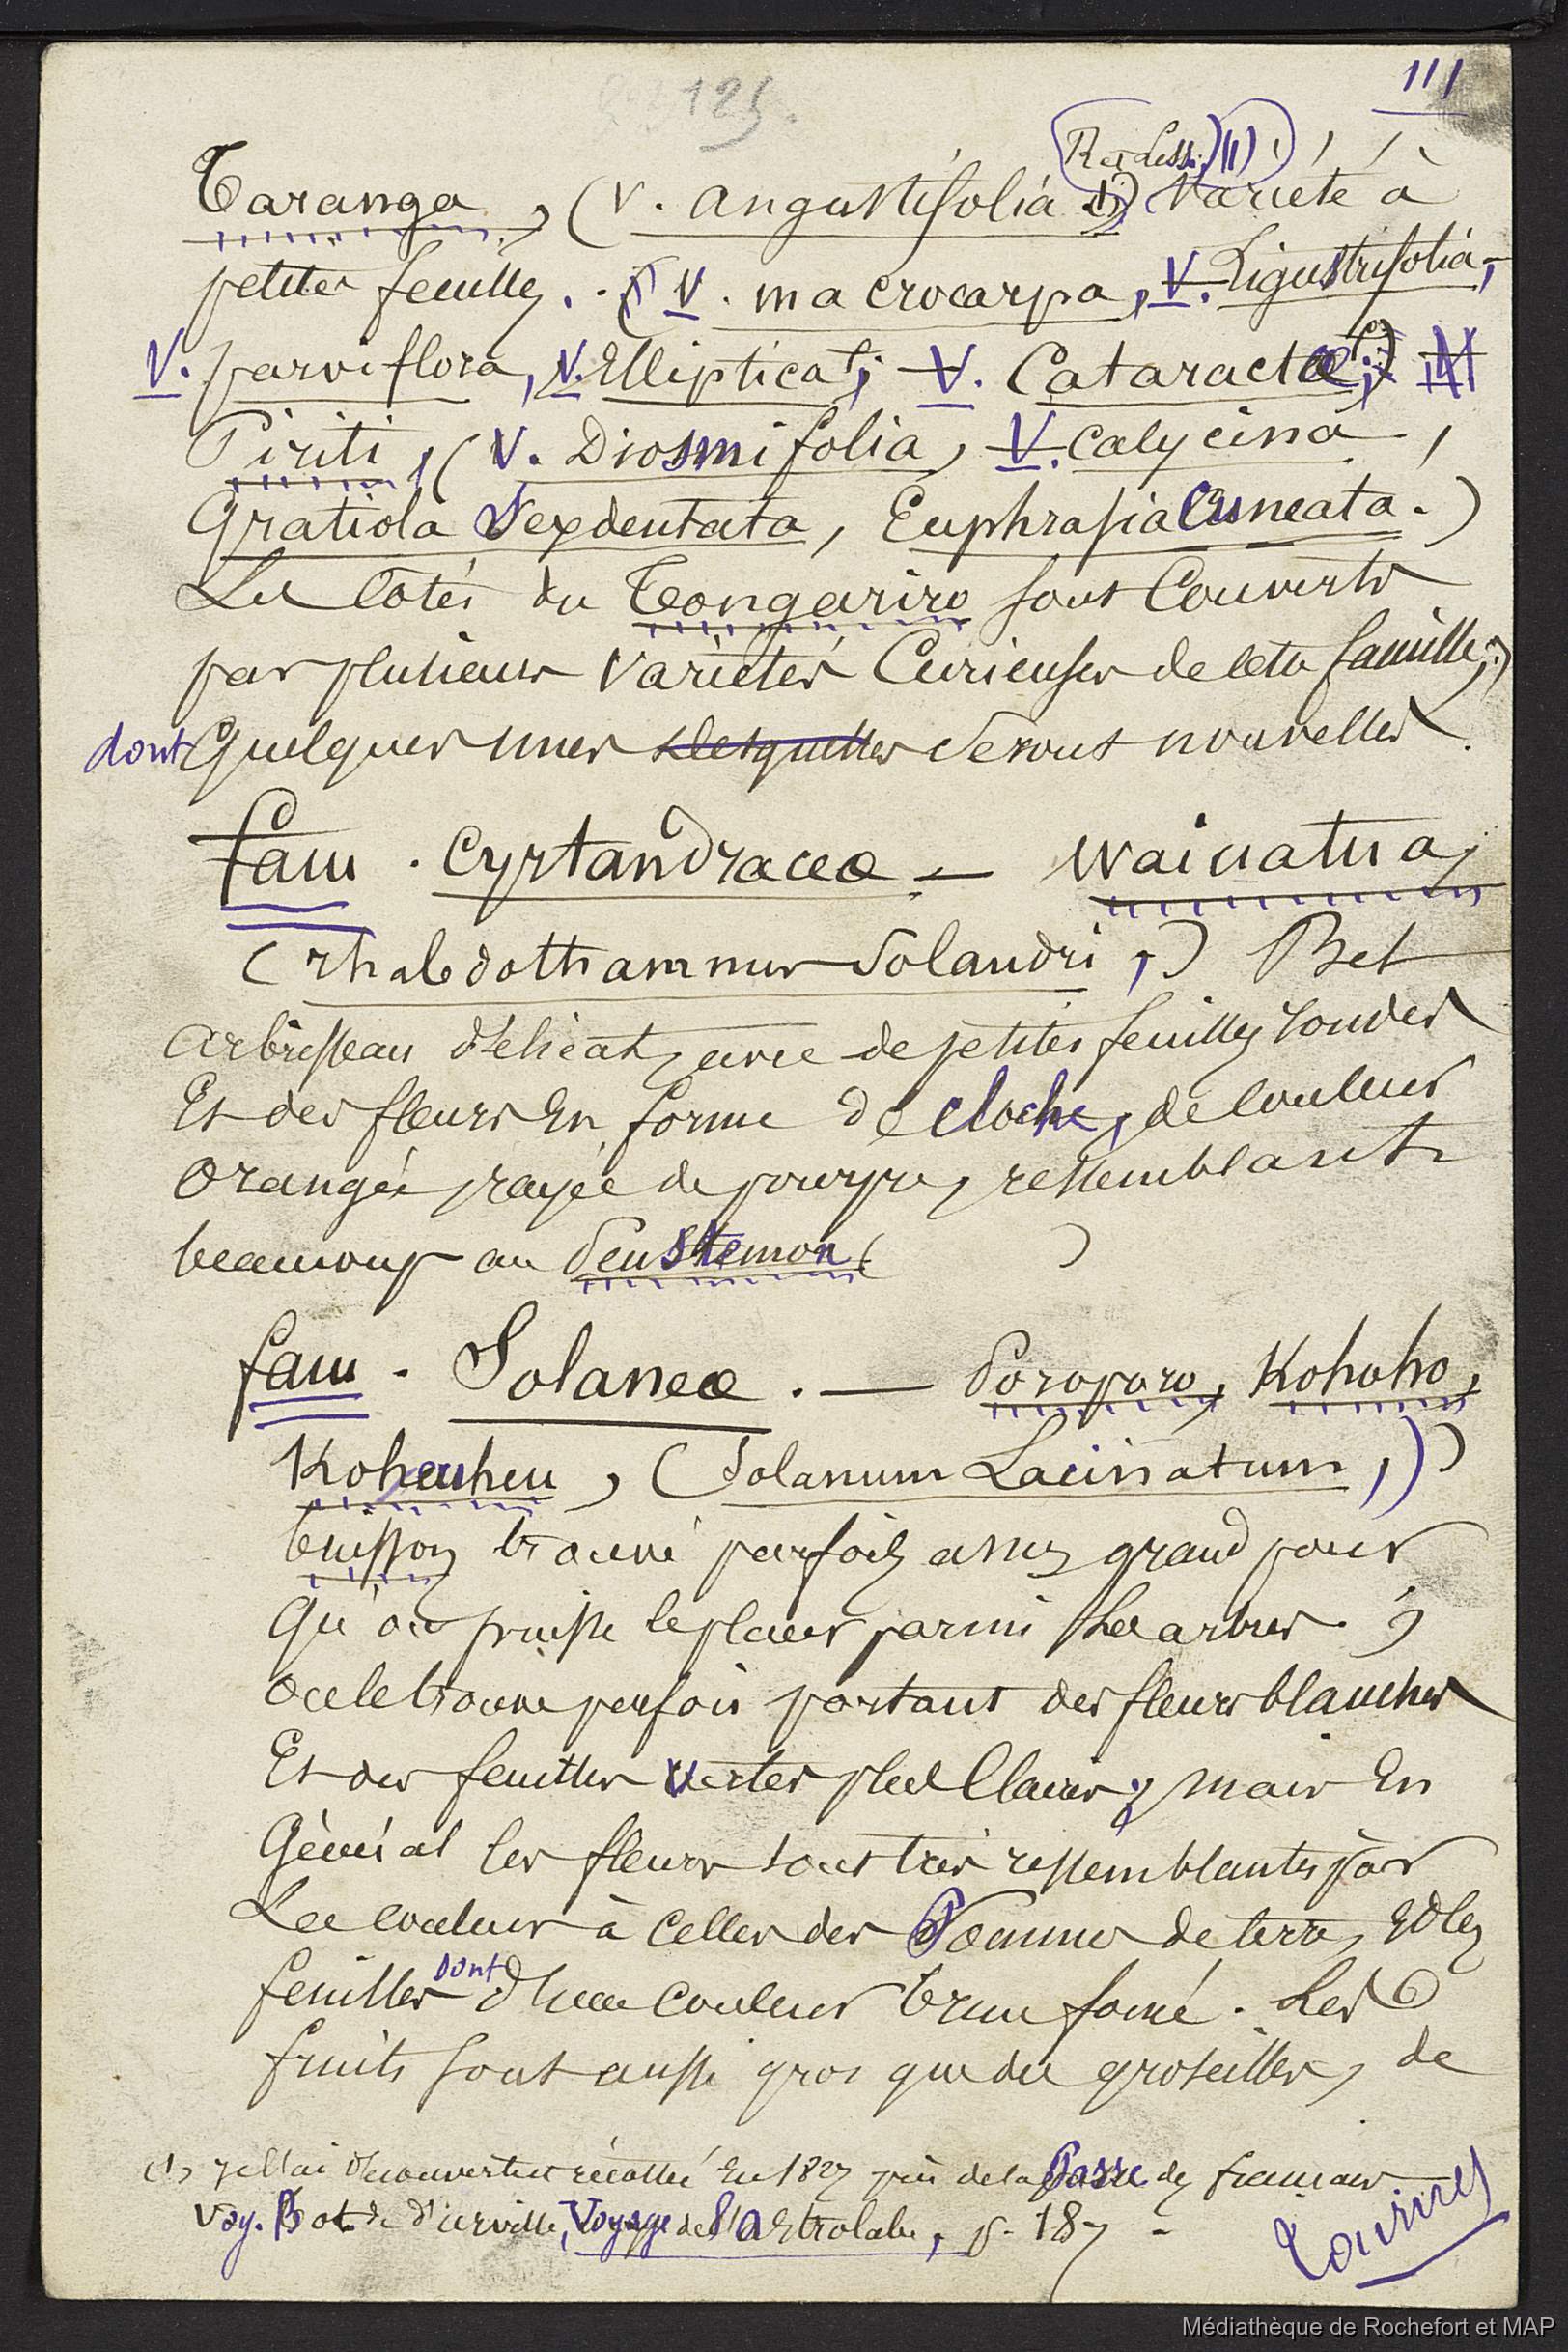 125.
111
R. et Less. (1)
Taranga, (V. angustifolia) Variété à
petites feuilles. (V. macrocarpa, V. Ligustrifolia,
V. parviflora, V. Elliptica, V. Cataractæ;)
Tiriti, (V. Diosmifolia, V. calycina,
Gratiola Sexdentata, Euphrasia Cuneata.)
Les Côtés du Tongariro sont Couverts
par plusieurs Variétés Curieuses de cette famille,
dont Quelques unes desquelles seront nouvelles.
fam. Cyrtandraceæ — Waiuatua,
(rhabdothamnus Solandri,) Bel
Arbrisseau délicat, avec de petites feuilles rondes
Et des fleurs En forme de cloche, de couleur
Orangée rayée de pourpre, ressemblant
beaucoup au Penstemon ( )
fam. Solaneæ. — Poroporo, Kohoho,
Kohouhou, (Solanum Lacinatum,)
buisson trouvé parfois assez grand pour
Qu'on puisse le placer parmi Les arbres;
On le trouve parfois portant des fleurs blanches
Et des feuilles vertes plus Claires, mais En
Général les fleurs sont très ressemblantes par
La couleur à celles des Pommes de terre, Et les
feuilles sont d'une couleur brun foncé. Les
fruits sont aussi gros que des groseilles, de
(1) Je l'ai découverte et récoltée En 1827 près de la Passe des français
Voy. Bot. de d'urville, Voyage de l'Astrolabe, p. 187 -
Tournez
Médiathèque de Rochefort et MAP